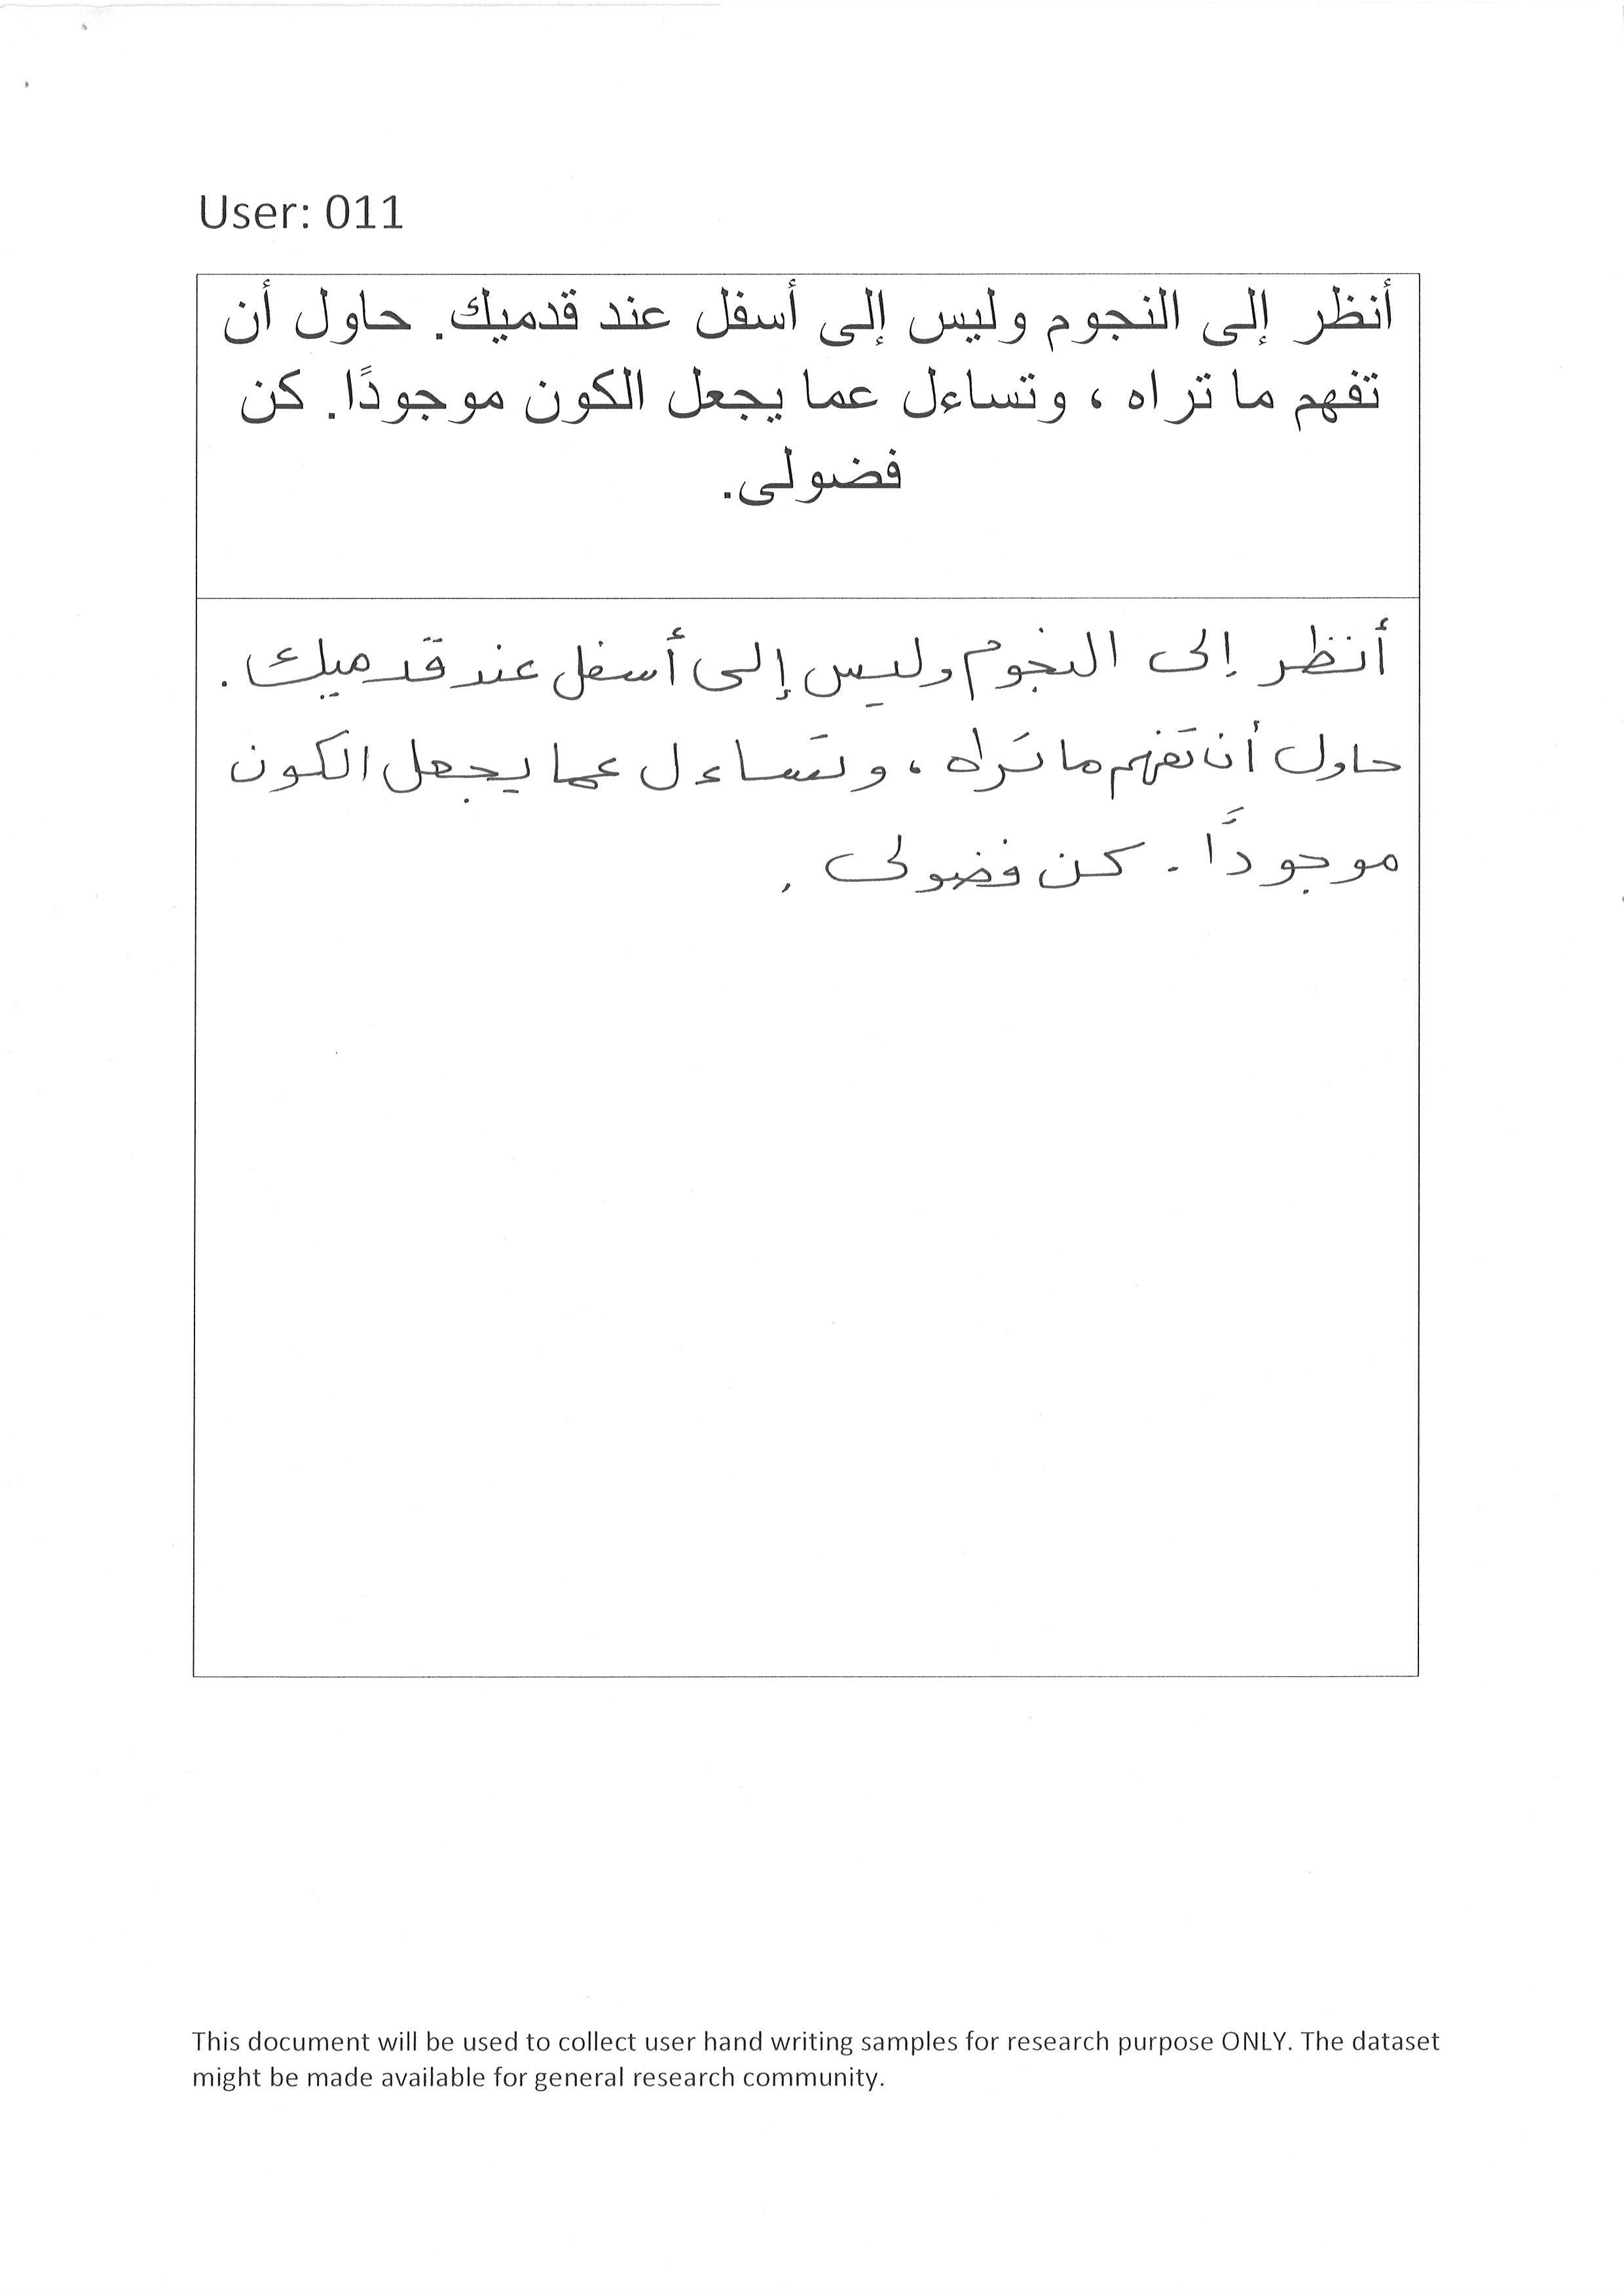 User: 011
أنظر إلى النجوم وليس إلى أسفل عند قدميك. حاول أن
تفهم ما تراه ، وتساءل عما يجعل الكون موجودًا. كن
فضولى.
أنظر إلى النجوم وليس إلى أسفل عند قدميك .
حاول أن تفهم ما تراه ، وتساءل عما يجعل الكون
موجودًا . كن فضولى .
This document will be used to collect user hand writing samples for research purpose ONLY. The dataset
might be made available for general research community.